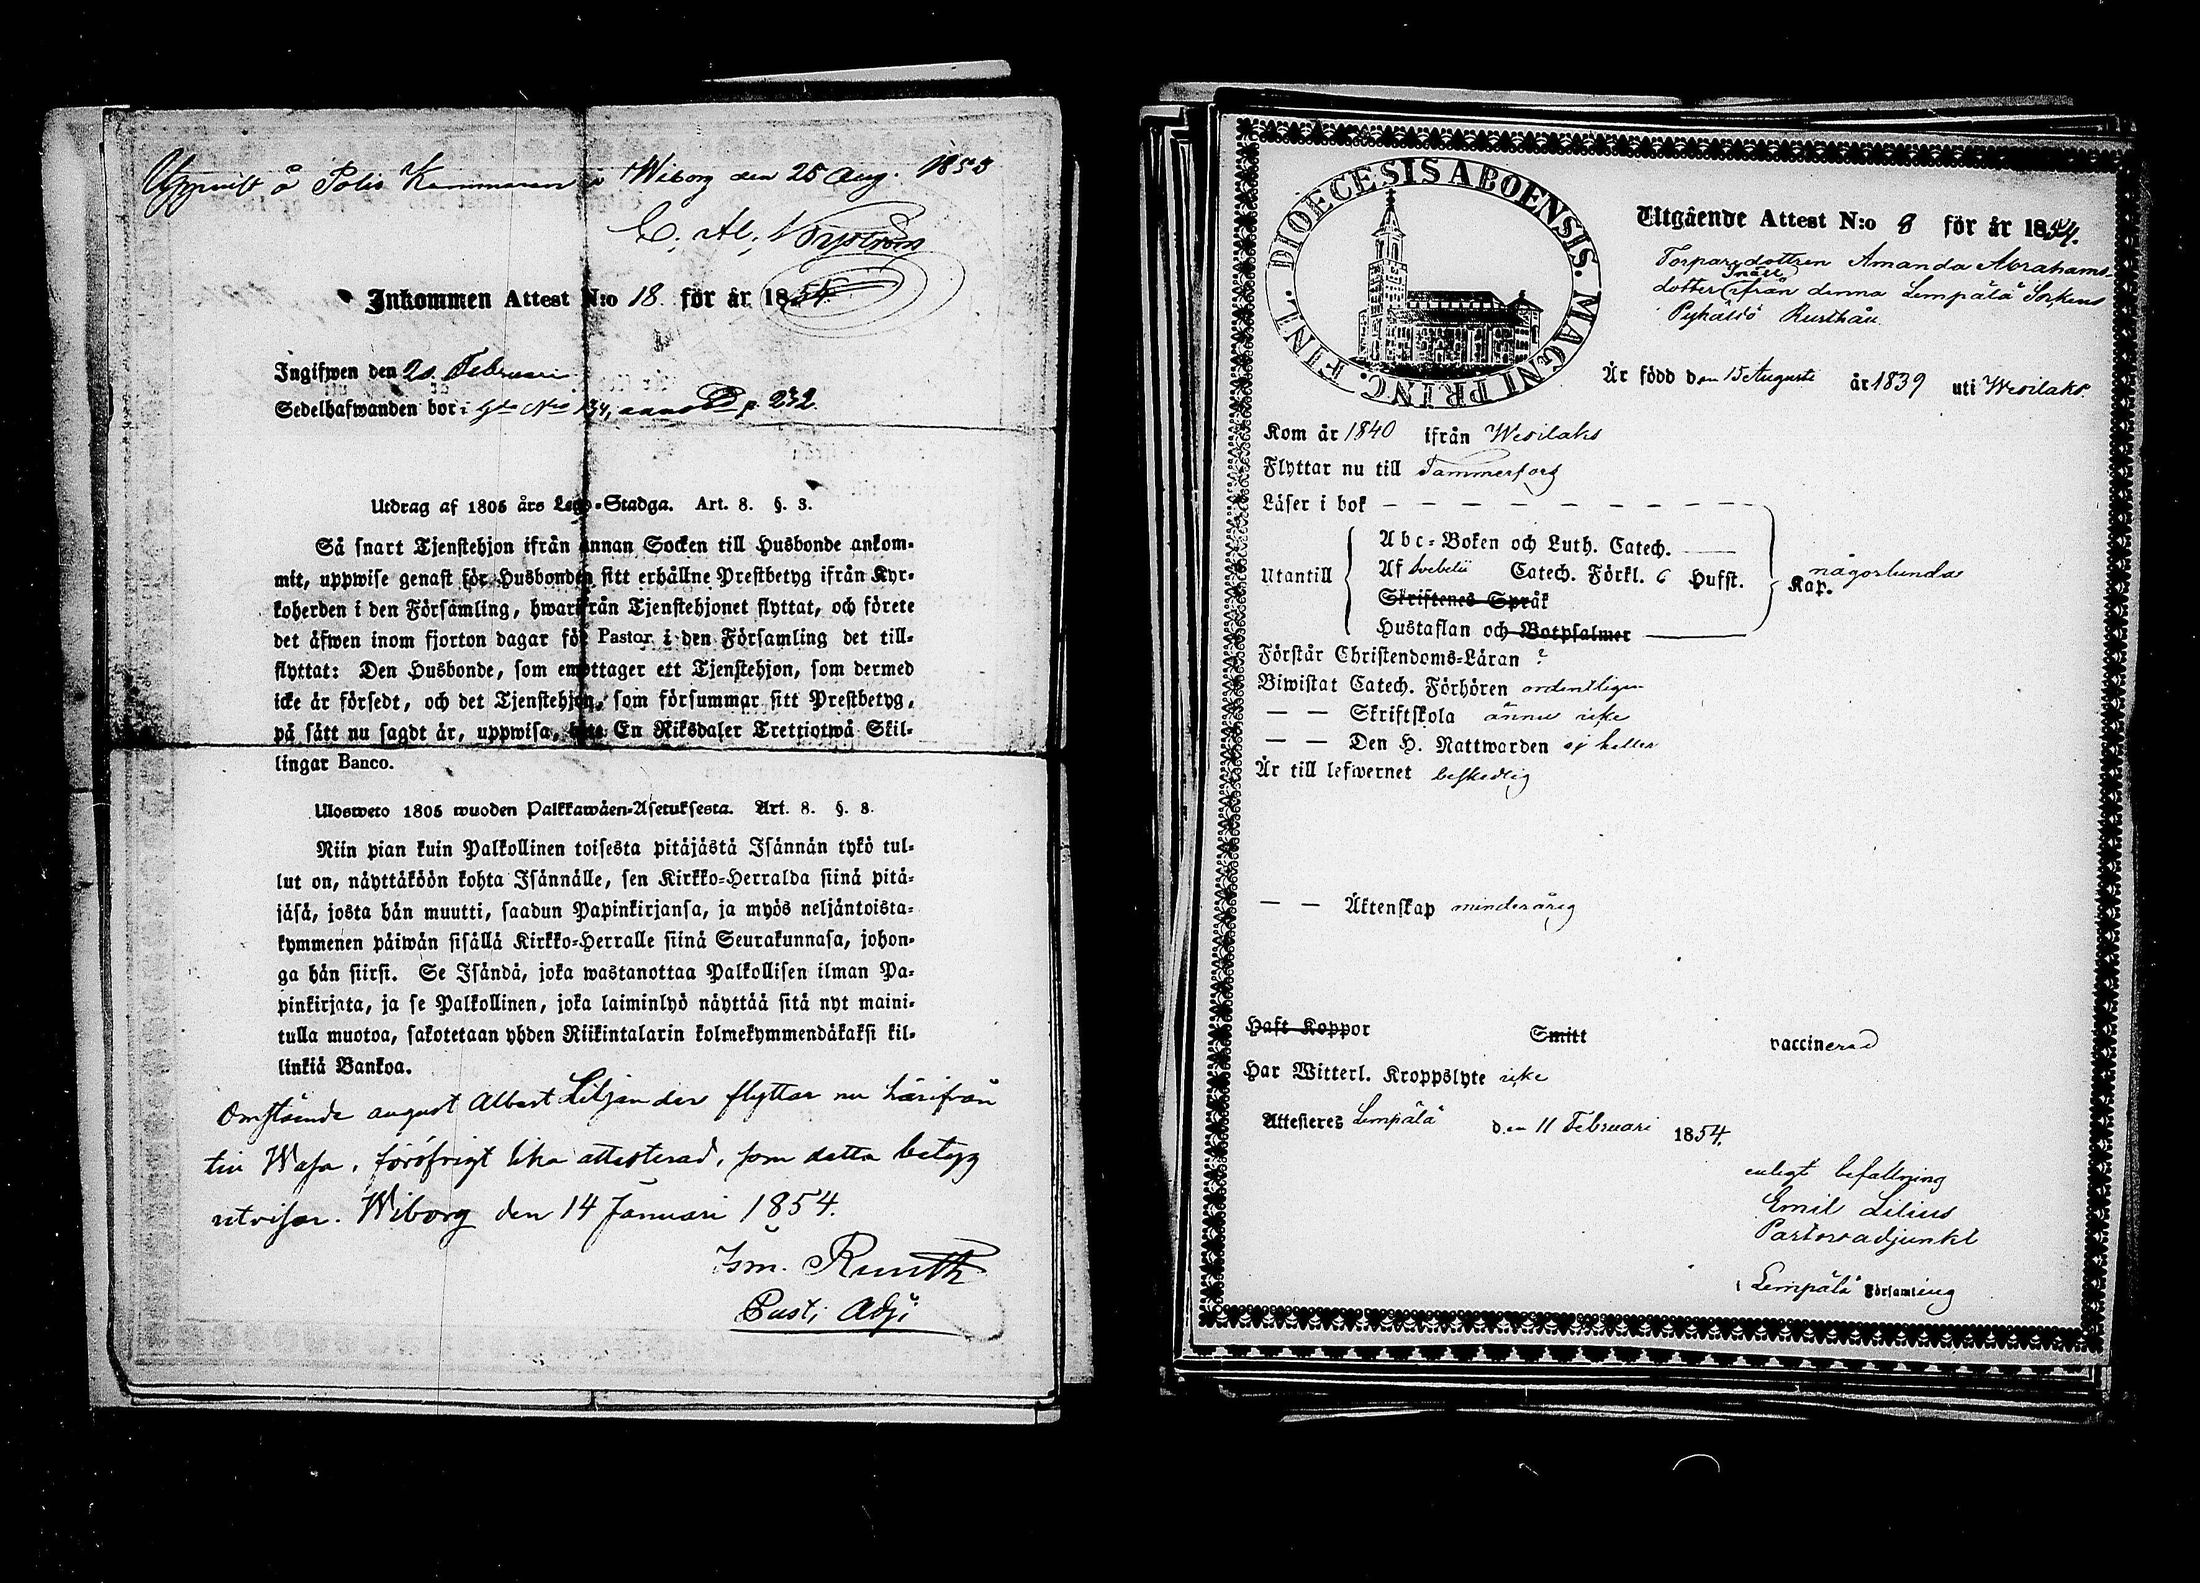 Uppvist å Polis Kammaren i Wiborg den 25 Aug. 1853
C. Al. Nyström
Inkommen Attest N:o 18. för år 1854
Ingifwen den 20 Februari
Sedelhafwanden bor i Gdn No 134, p. 232.
Utdrag af 1805 års Lego-Stadga. Art. 8. §. 3.
Så snart Tjenstehjon ifrån annan Socken till Husbonde ankom-
mit, uppwise genast för Husbonden sitt erhållne Prestbetyg ifrån Kyr-
koherden i den Församling, hwarifrån Tjenstehjonet flyttat, och förete
det äfwen inom fjorton dagar för Pastor i den Församling det till-
flyttat: Den Husbonde, som emottager ett Tjenstehjon, som dermed
icke är försedt, och det Tjenstehjon, som försummar sitt Prestbetyg,
på sätt nu sagdt är, uppwisa, böte En Riksdaler Trettiotwå Skil-
lingar Banco.
Ulosweto 1805 wuoden Palkkawäen-Asetuksesta. Art. 8. §. 3.
Niin pian kuin Palkollinen toisesta pitäjästä Isännän tykö tul-
lut on, näyttäköön kohta Isännälle, sen Kirkko-Herralda siinä pitä-
jäsä, josta hän muutti, saadun Papinkirjansa, ja myös neljäntoista-
kymmenen päiwän sisällä Kirkko-Herralle siinä Seurakunnasa, johon-
ga hän siirsi. Se Isändä, joka wastanottaa Palkollisen ilman Pa-
pinkirjata, ja se Palkollinen, joka laiminlyö näyttää sitä nyt maini-
tulla muotoa, sakotetaan yhden Riikintalarin kolmekymmendäkaksi kil-
linkiä Bankoa.
Omstående august Albert Liljander flyttar nu härifrån
till Wasa, föröfrigt lika attesterad, som detta betyg
utvisar. Wiborg den 14 Januari 1854.
Ism. Runth
Past: Adj:
DIOECESIS ABOENSIS. MAGNI PRINC. FINL.
Utgående Attest N:o 8 för år 1854.
Torparedottren Amanda Abrahams-
dotter Snäll ifrån denna Lempälä Sockens
Pyhältö Rusthåll
Är född den 15 Augusti år 1839 uti Wesilaks.
Kom år 1840 ifrån Wesilaks
Flyttar nu till Tammerfors
Läser i bok — — — — — — — —
Abc-Boken och Luth. Catech. —
Utantill Af Svebelii Catech. Förkl. 6 Hufst. Kap. någorlunda
Skriftenes Språk
Hustaflan och Botpsalmer —
Förstår Christendoms-Läran ?
Biwistat Catech. Förhören ordentligen
— — Skriftskola ännu icke
— — Den H. Nattwarden ej heller
Är till lefwernet beskedlig
— — Äktenskap minderårig
Haft Koppor Smitt vaccinerad
Har Witterl. Kroppslyte icke
Attesteres Lempälä den 11 Februari 1854.
enligt befallning
Emil Lilius
Pastorsadjunkt
i Lempälä Församling